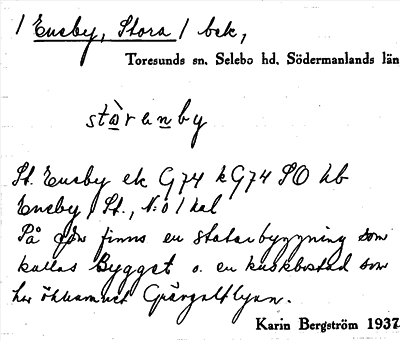 / Eneby, Stora / bek,
Toresunds sn. Selebo hd. Södermanlands län
stòrenby
St. Eneby ek G74 kG74 SO hb
Eneby, St., N:o 1 hal
På finns en statarbyggning som
kallas Bygget o. en kuskbostad som
har öknamnet
Karin Bergström 1937